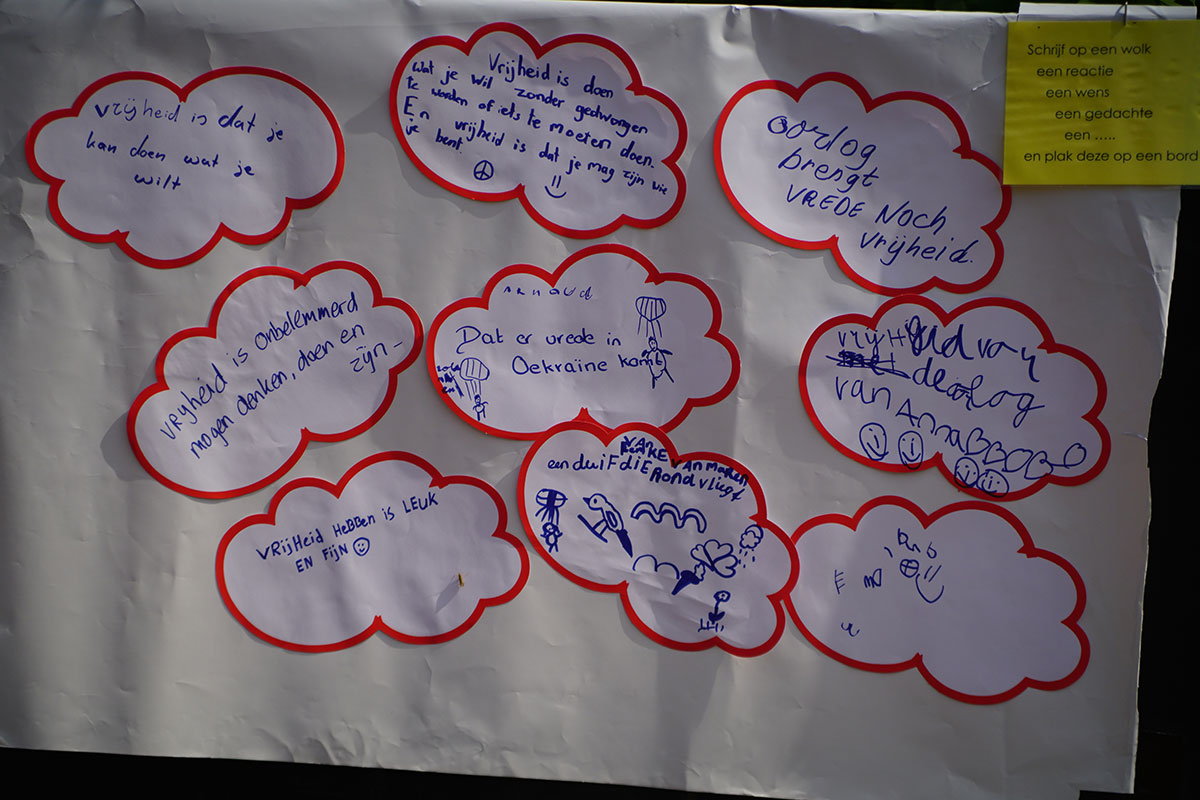 Schrijf op een wolk
een reactie
een wens
een gedachte
een .....
en plak deze op een bord
vrijheid is dat je
kan doen wat je
wilt
Vrijheid is doen
wat je wil zonder gedwongen
te worden of iets te moeten doen.
En vrijheid is dat je mag zijn wie
je bent.
oorlog
brengt
VREDE NOCH
vrijheid.
vrijheid is onbelemmerd
mogen denken, doen en
zijn-
ARNOUD
Dat er vrede in
Oekraïne kom
van
van Anna
VRijHeid HeBBen is LEUK
EN FijN
VAN
een duiF diE Rond vliegt